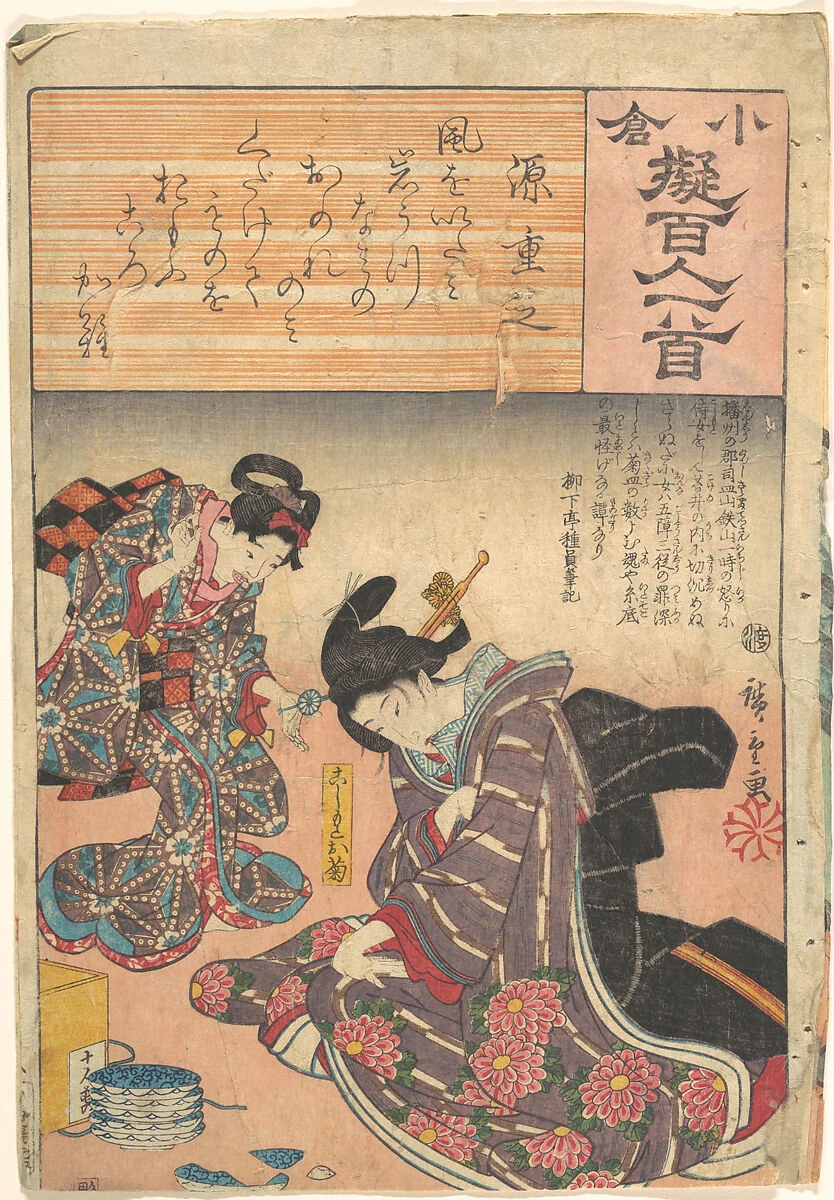 小倉
擬百人一首
源重之
風をいたミ
岩うつ
なミの
おのれ
のミ
くだけて
ものを
おもふ
ころ
加難
播州の郡司皿山鉄山一時の怒りに
侍女をして古井の内に切沈めぬ
さらぬだに女ハ五障三従の罪深
しとかや菊皿の数よむ魂や糸底
の最怪げなる譚なり
柳下亭種員筆記
渡
廣重画
こしもとお菊
十人前